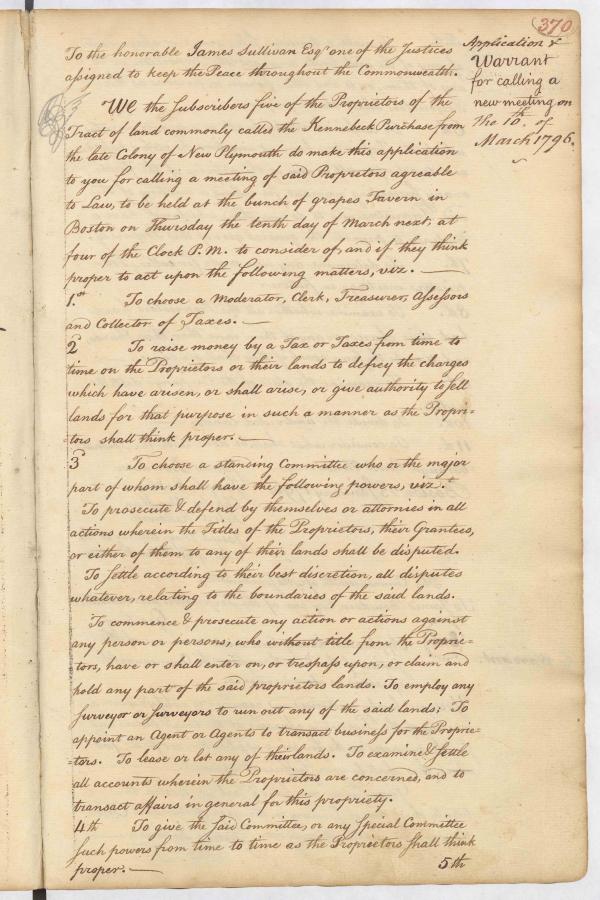 370
Application &
Warrant
for calling a
new meeting on
the 10th. of
March 1796.
To the honorable James Sullivan Esqr. one of the Justices
assigned to keep the Peace throughout the Commonwealth.
We the Subscribers five of the Proprietors of the
Tract of land commonly called the Kennebeck Purchase from
the late Colony of New Plymouth do make this application
to you for calling a meeting of said Proprietors agreable
to Law, to be held at the bunch of grapes Tavern in
Boston on Thursday the tenth day of March next, at
four of the Clock P.M. to consider of, and if they think
proper to act upon the following matters, viz. —
1.st To choose a Moderator, Clerk, Treasurer, Assessors
and Collector of Taxes. —
2 To raise money by a Tax or Taxes from time to
time on the Proprietors or their lands to defrey the charges
which have arisen, or shall arise, or give authority to sell
lands for that purpose in such a manner as the Propri-
-tors shall think proper. —
3 To choose a standing Committee who or the major
part of whom shall have the following powers, viz.t
To prosecute & defend by themselves or attornies in all
actions wherein the Titles of the Proprietors, their Grantees,
or either of them to any of their lands shall be disputed.
To settle according to their best discretion, all disputes
whatever, relating to the boundaries of the said lands.
To commence & prosecute any action or actions against
any person or persons, who without title from the Proprie-
-tors, have or shall enter on, or trespass upon, or claim and
hold any part of the said proprietors lands. To employ any
surveyor or surveyors to run out any of the said lands; To
appoint an Agent or Agents to transact business for the Proprie-
-tors. To lease or let any of their lands. To examine & settle
all accounts wherein the Proprietors are concerned, and to
transact affairs in general for this propriety.
4th To give the said Committee, or any special Committee
such powers from time to time as the Proprietors shall think
proper. —
5th